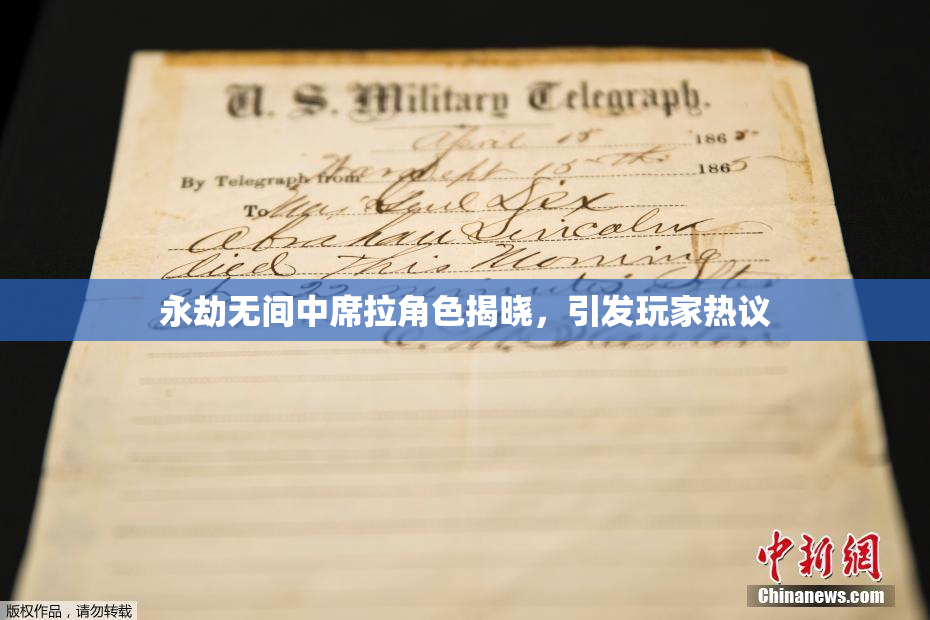 U. S. Military Telegraph.
April 15 1865
By Telegraph from War Dept 15th 1865
To Maj Genl Dix
Abraham Lincoln
died This Morning
at 22 minutes after
永劫无间中席拉角色揭晓，引发玩家热议
E. M. Stanton
中新網
Chinanews.com
版权作品，请勿转载